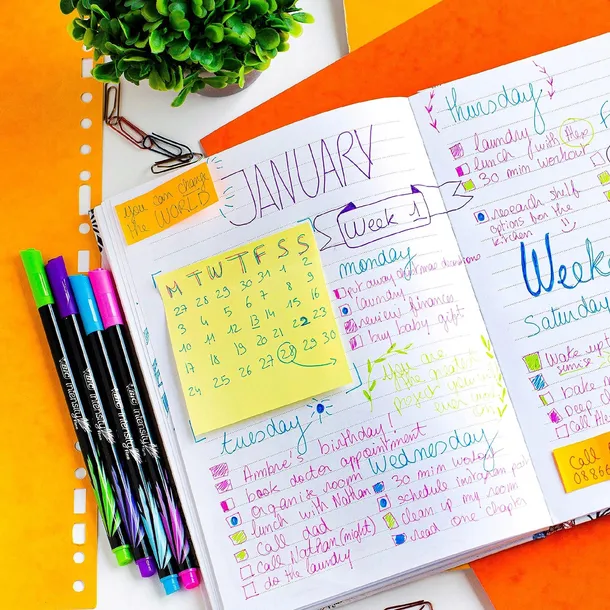 you can change
the WORLD
JANUARY
Week 1
M T W T F S S
27 28 29 30 31 1 2
3 4 5 6 7 8 9
10 11 12 13 14 15 16
17 18 19 20 21 22 23
24 25 26 27 28 29 30
monday
put away christmas decorations
laundry
review finances
buy baby gift
You are
the
project you will
ever
on
tuesday
Ambre's birthday!
book doctor appointment
organize room
lunch with Nathan
call dad
call Nathan (might)
do the laundry
Wednesday
30 mim
schedule instagram
clean up my room
read one chapter
thursday
laundry
lunch (with Theo)
30 mim workout
research shelf
options for the
kitchen
F
Week
Saturday
Wake up
bake
Deep cl
Call
Call
0886